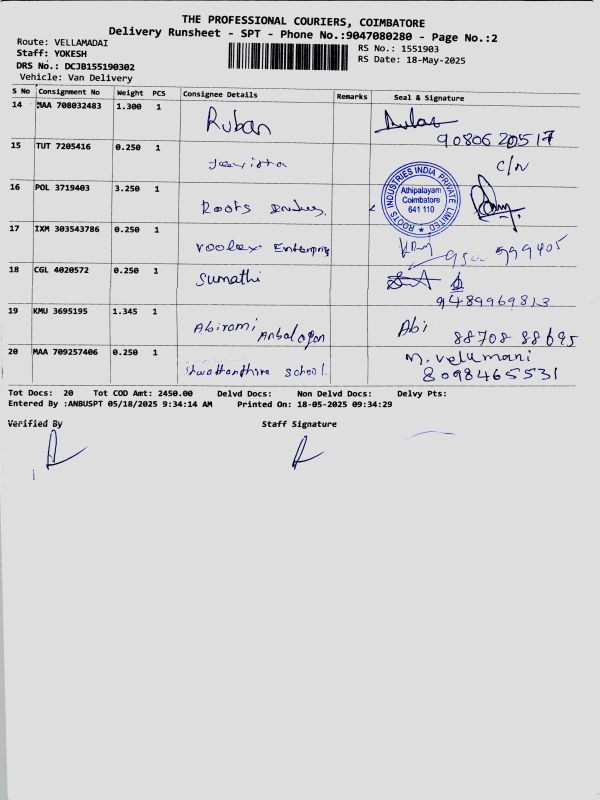 THE PROFESSIONAL COURIERS, COIMBATORE
Delivery Runsheet - SPT - Phone No.:9047080280 - Page No.:2
Route: VELLAMADAI
Staff: YOKESH
DRS No.: DCJB155190302
Vehicle: Van Delivery
RS No.: 1551903
RS Date: 18-May-2025
S No Consignment No Weight PCS Consignee Details Remarks Seal & Signature
14 MAA 708032483 1.300 1 Ruban
9080620517
15 TUT 7205416 0.250 1 C/N
16 POL 3719403 3.250 1 Roots
ROOTS INDUSTRIES INDIA PRIVATE LIMITED
Athipalayam
Coimbatore
641 110
17 IXM 303543786 0.250 1 Enterprig
18 CGL 4020572 0.250 1 Sumathi
9489969813
19 KMU 3695195 1.345 1 Abirami Anbalagan Abi
88708 88695
20 MAA 709257406 0.250 1 school. M. Velumani
8098465531
Tot Docs: 20 Tot COD Amt: 2450.00 Delvd Docs: Non Delvd Docs: Delvy Pts:
Entered By :ANBUSPT 05/18/2025 9:34:14 AM Printed On: 18-05-2025 09:34:29
Verified By Staff Signature